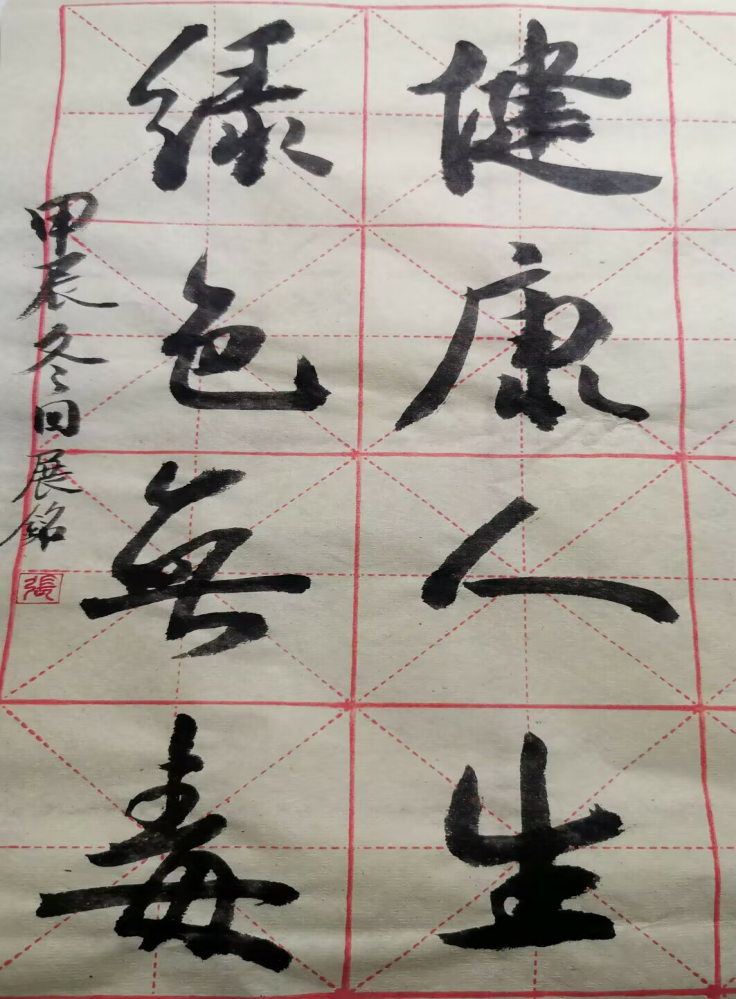 健康人生
绿色無毒
甲辰冬日展銘
張